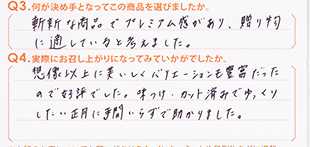 Q3.何が決め手となってこの商品を選びましたか。
斬新な商品でプレミアム感があり、贈り物
に適していると考えました。
Q4.実際にお召し上がりになってみていかがでしたか。
想像以上に美味しくバリエーションも豊富だった
ので好評でした。味つけ・カット済みでゆっくり
したい正月に手間いらずで助かりました。